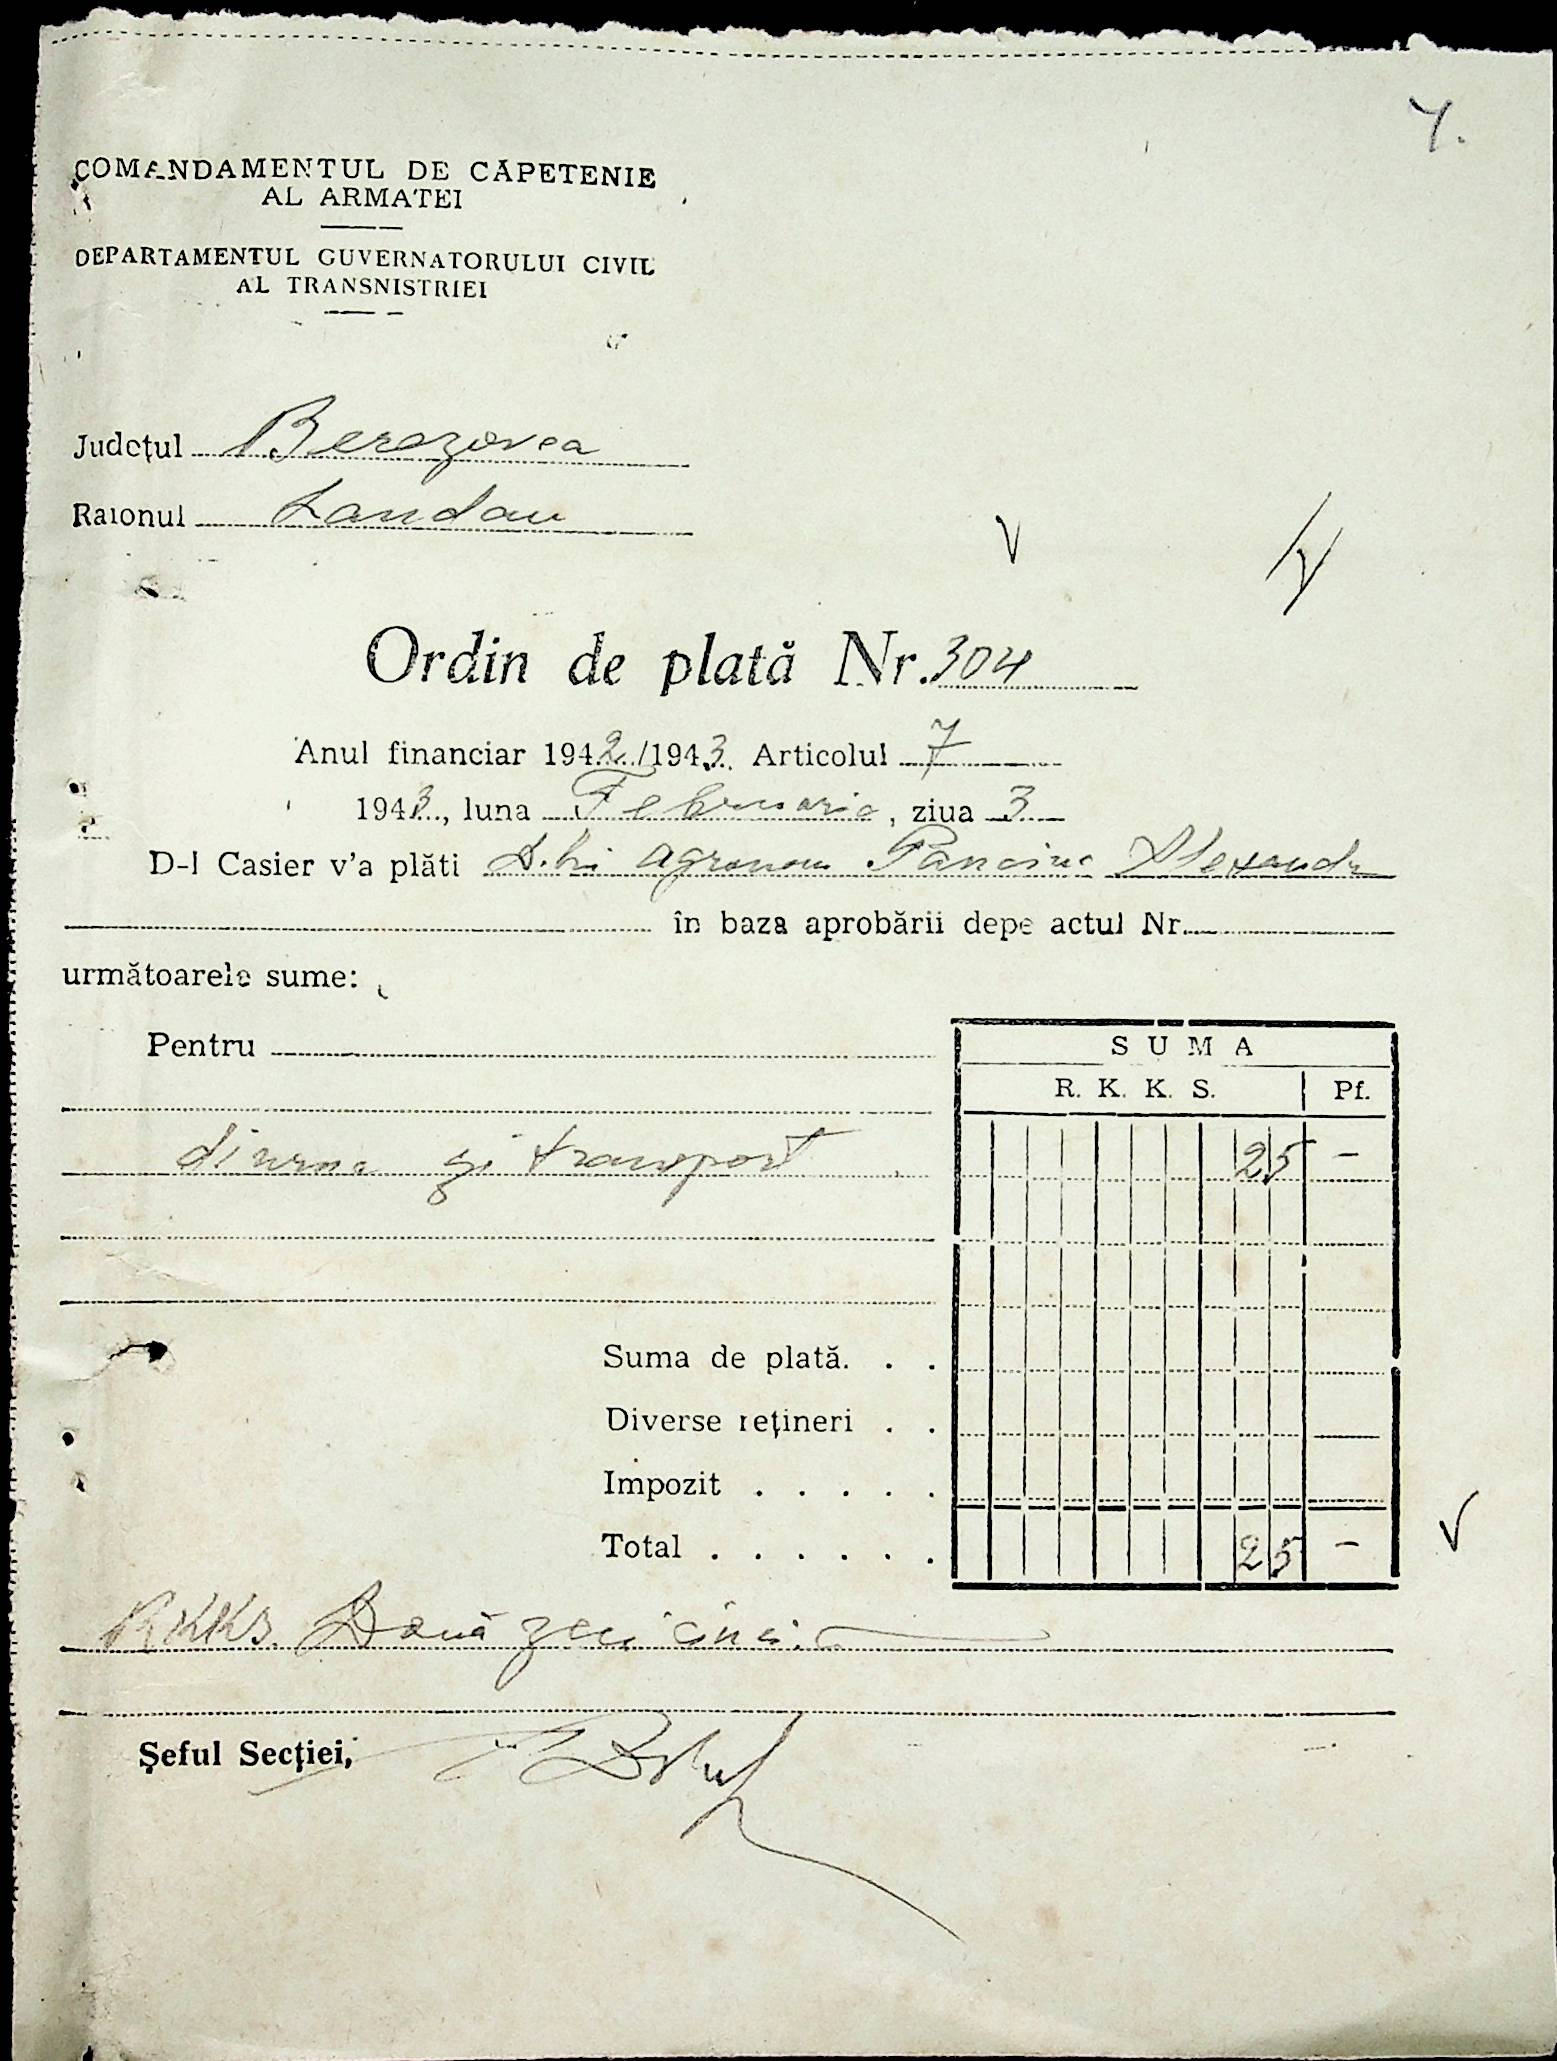 7.
COMANDAMENTUL DE CĂPETENIE
AL ARMATEI
DEPARTAMENTUL GUVERNATORULUI CIVIL
AL TRANSNISTRIEI
Județul Berezovca
Raionul Landau
Ordin de plată Nr. 304
Anul financiar 1942/1943. Articolul 7
1943, luna Februarie, ziua 3
D-l Casier v'a plăti D-lui agronom Alexandru
în baza aprobării depe actul Nr.
următoarele sume:
Pentru
SUMA
R. K. K. S. Pf.
diurna și transport 25 -
Suma de plată. . .
Diverse rețineri . .
Impozit . . . . .
Total . . . . . . 25 -
RKKS. Două zeci cinci.
Șeful Secției,